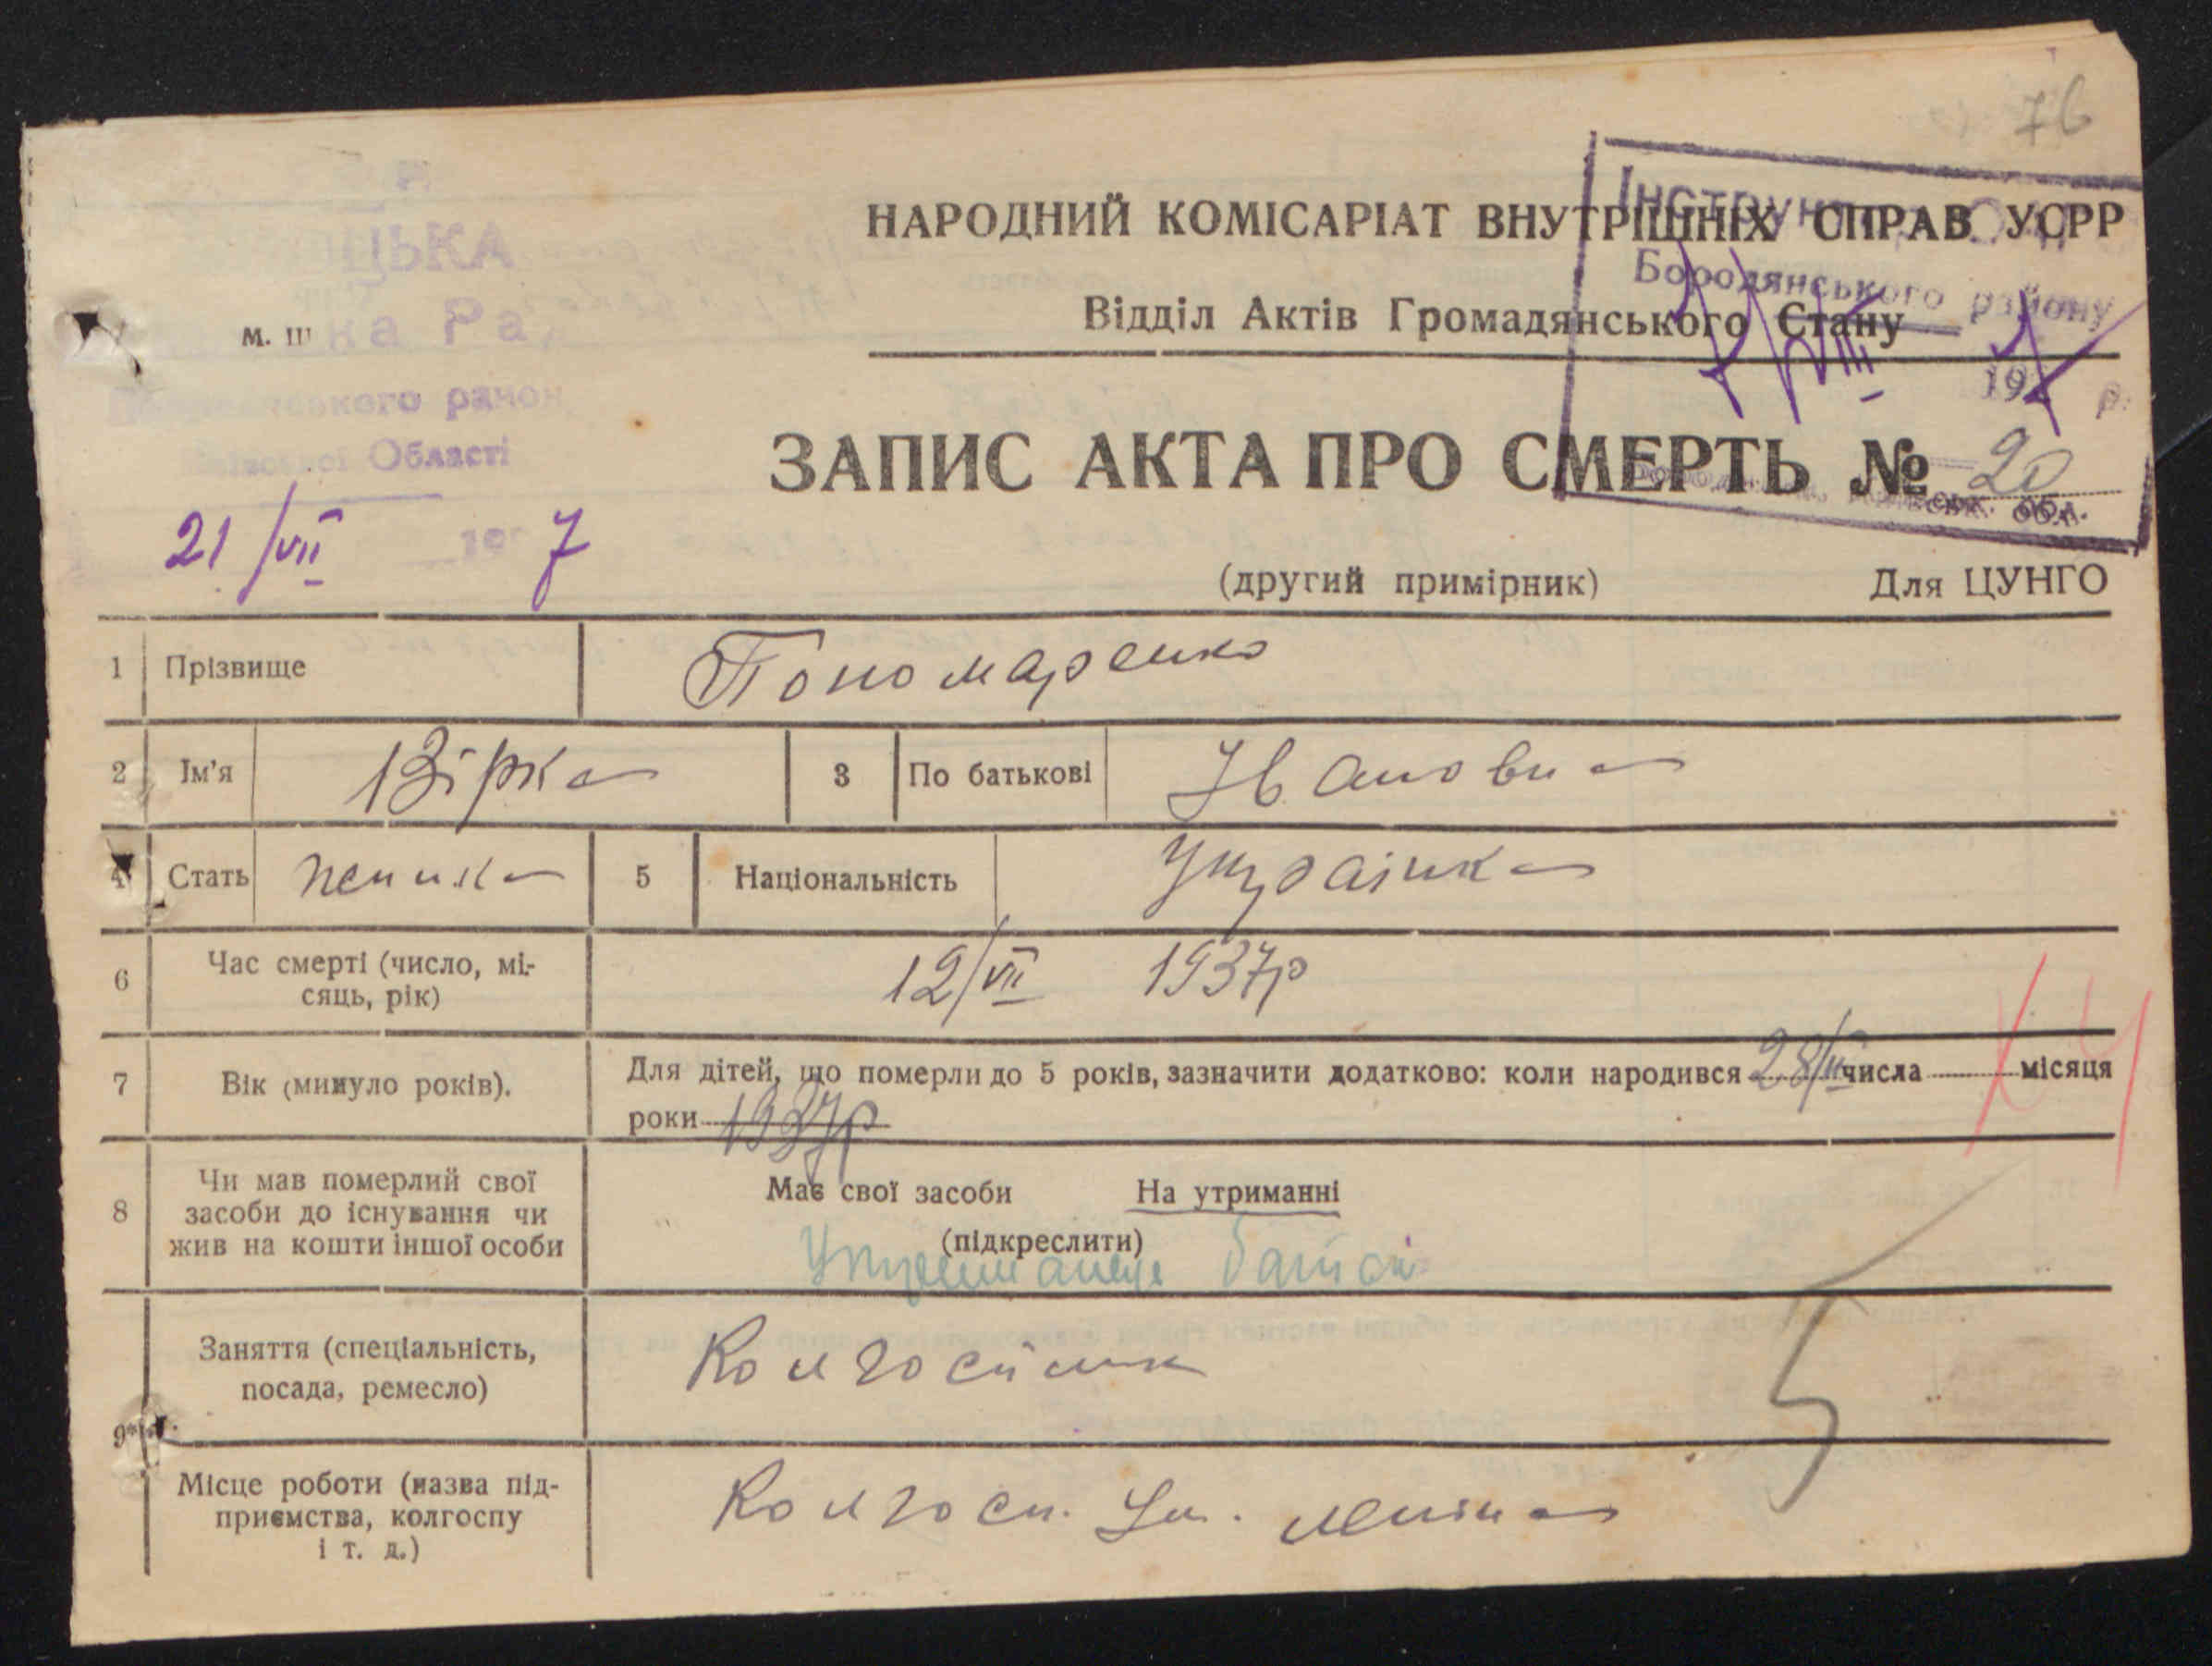 76
НАРОДНИЙ КОМІСАРІАТ ВНУТРІШНІХ СПРАВ УСРР
Бородянського району
м. Ш
Відділ Актів Громадянського Стану
Області
ЗАПИС АКТА ПРО СМЕРТЬ № 20
обл.
21/VII 7
(другий примірник) Для ЦУНГО
1 Прізвище Пономаренко
2 Ім'я Вірка 3 По батькові Івановна
4 Стать жінка 5 Національність Українка
6 Час смерті (число, мі-
сяць, рік) 12/VII 1937р
7 Вік (минуло років). Для дітей, що померли до 5 років, зазначити додатково: коли народився 28/ числа місяця
роки 1937р
8 Чи мав померлий свої
засоби до існування чи
жив на кошти іншої особи
Має свої засоби На утриманні
(підкреслити)
Заняття (спеціальність,
посада, ремесло) Колгоспник
9*
Місце роботи (назва під-
приємства, колгоспу
і т. д.) Колгосп. Ім. Леніна